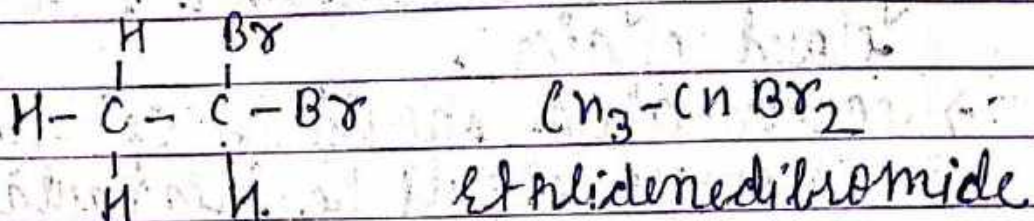 H Br
H - C - C - Br CH3 - CH Br2
H H. Ethlidenedibromide